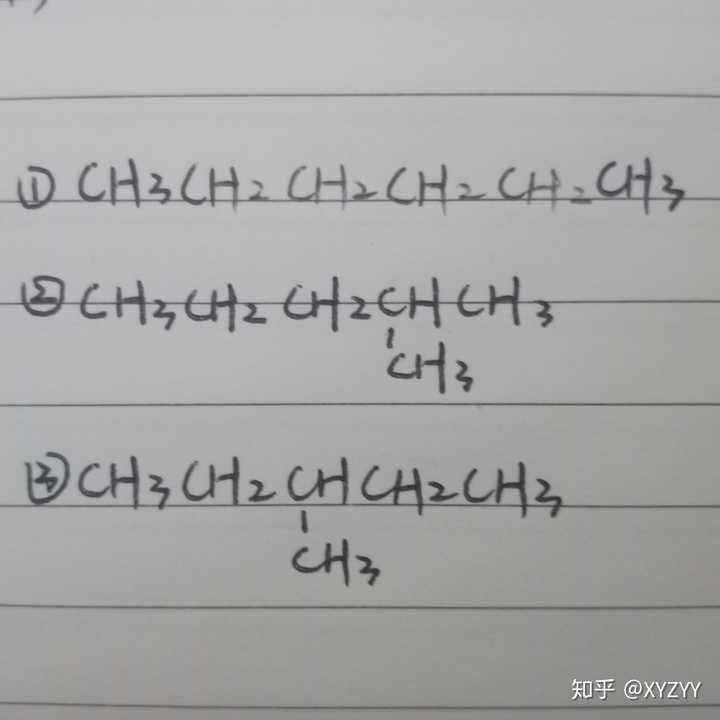 ① CH3CH2CH2CH2CH2CH3
② CH3CH2CH2CHCH3
CH3
③ CH3CH2CHCH2CH3
CH3
知乎 @XYZYY